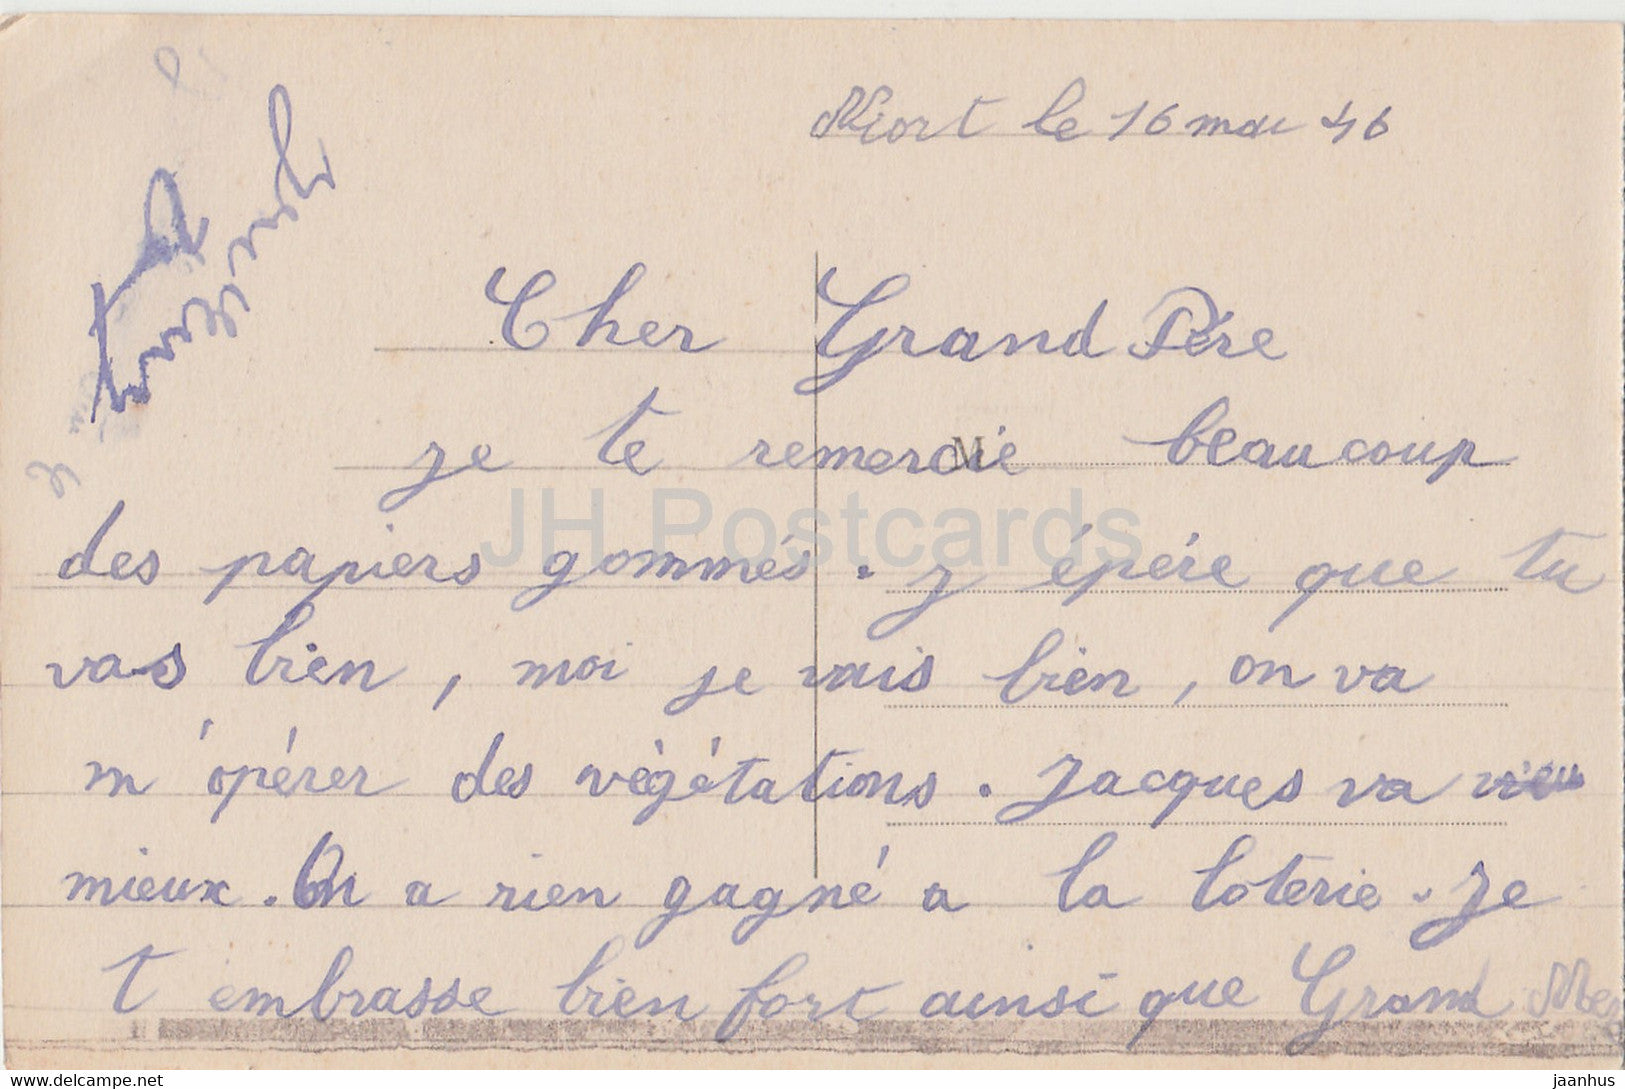 Niort le 16 mai 46
Cher Grand Père
je te remercie beaucoup
des papiers gommés. J épére que tu
vas bien, moi je vais bien, on va
m'opérer des végétations. Jacques va
mieux. On a rien gagné a la loterie. Je
t embrasse bien fort ainsi que Grand Mere
M
JH Postcards
www.delcampe.net
jaanhus